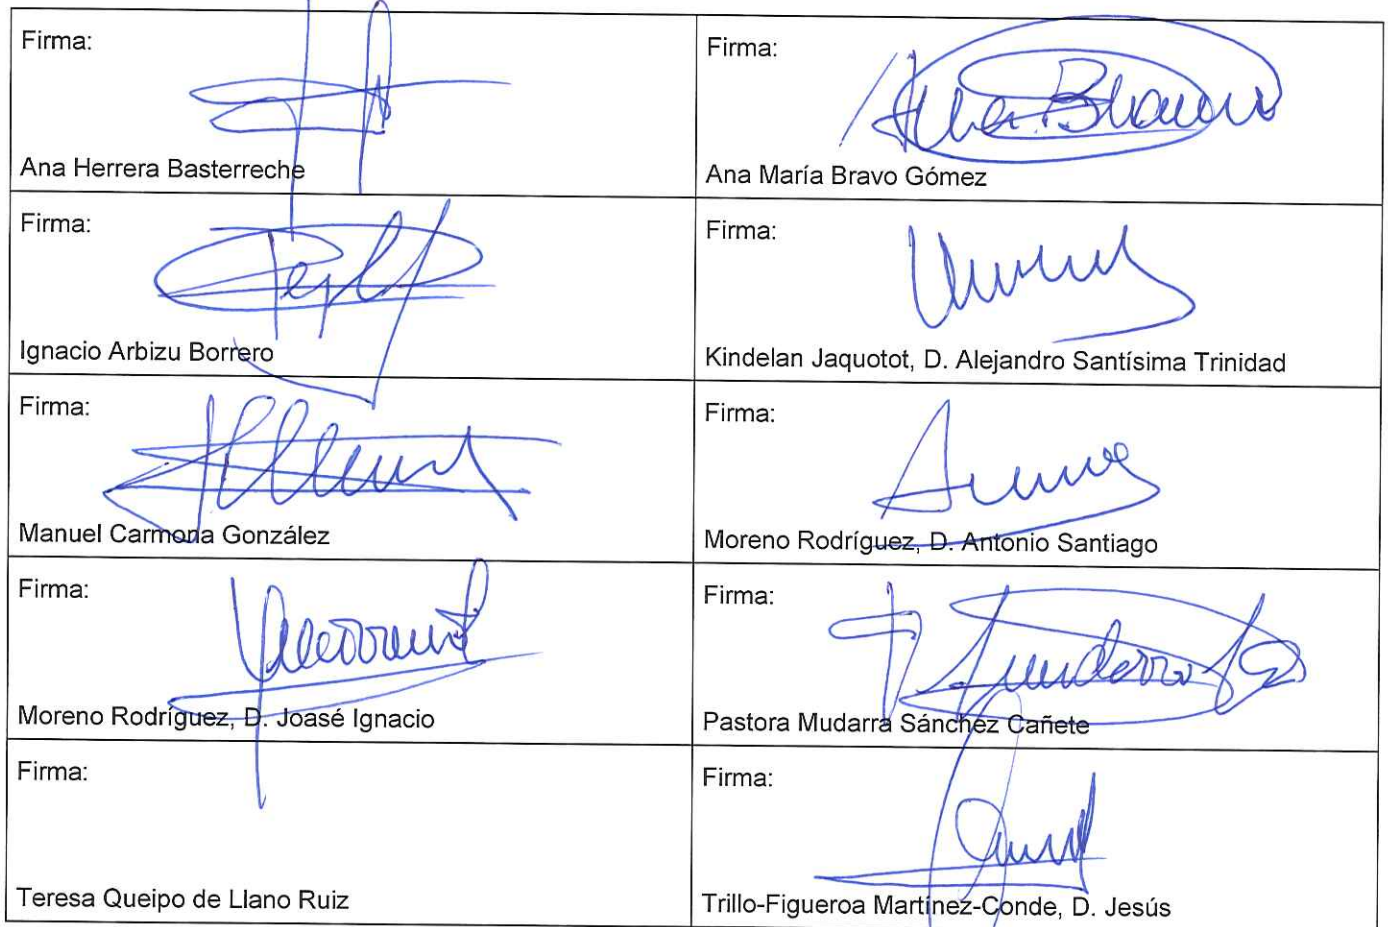 Firma:
Ana Herrera Basterreche
Firma:
Ana María Bravo Gómez
Firma:
Ignacio Arbizu Borrero
Firma:
Kindelan Jaquotot, D. Alejandro Santísima Trinidad
Firma:
Manuel Carmona González
Firma:
Moreno Rodríguez, D. Antonio Santiago
Firma:
Moreno Rodríguez, D. Joasé Ignacio
Firma:
Pastora Mudarra Sánchez Cañete
Firma:
Teresa Queipo de Llano Ruiz
Firma:
Trillo-Figueroa Martínez-Conde, D. Jesús